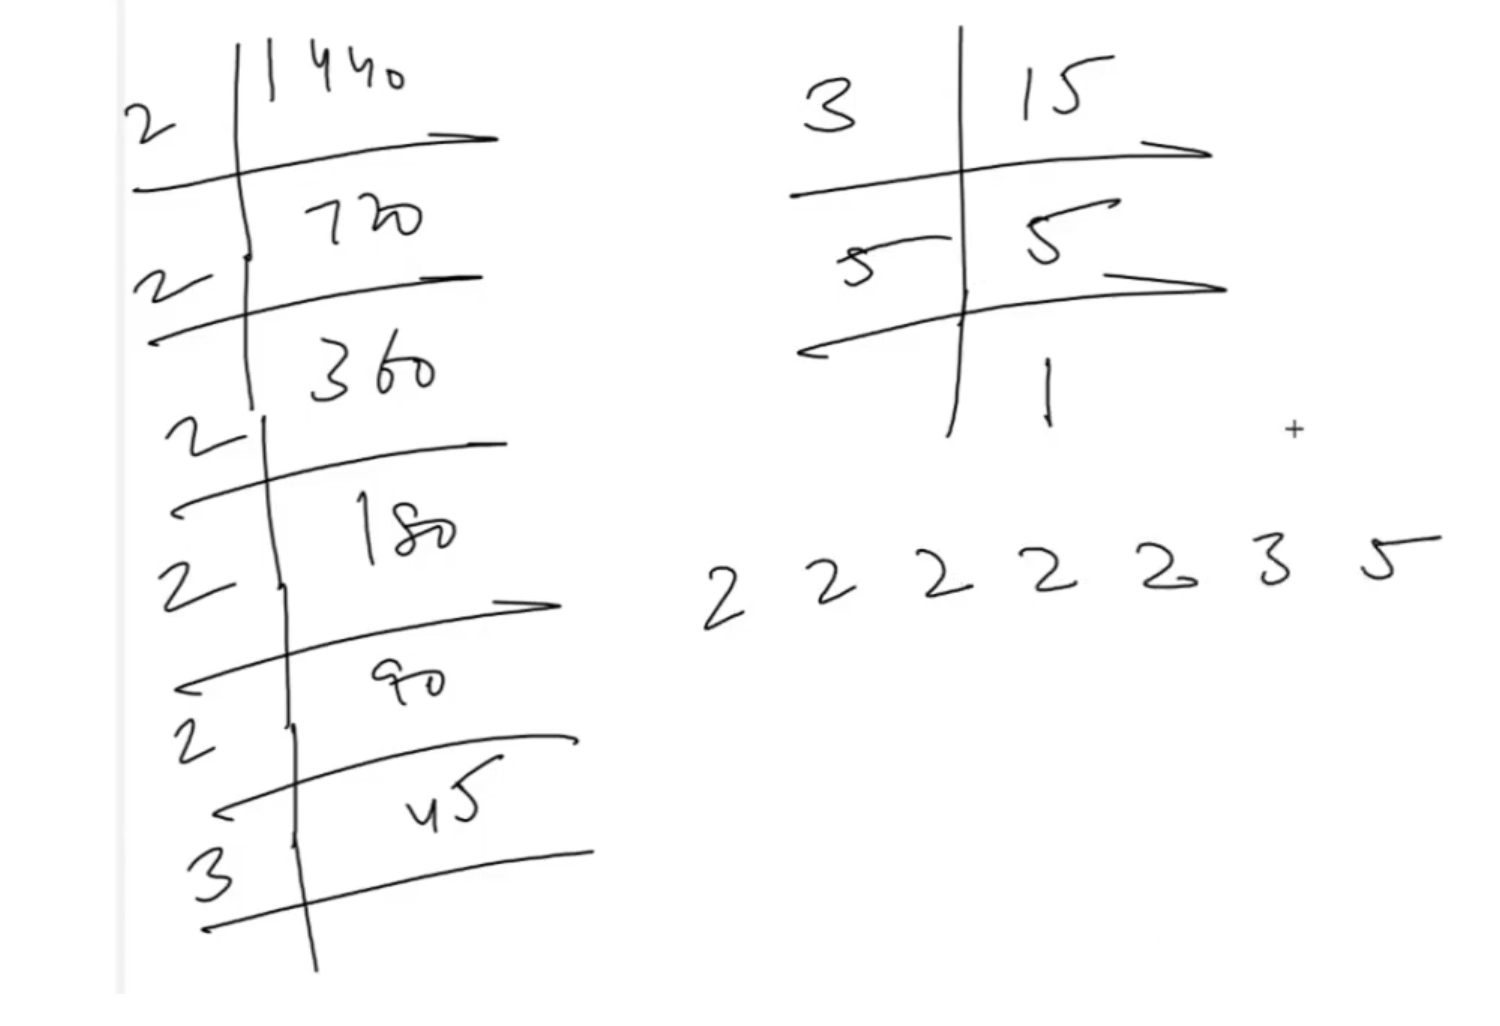 2 | 1440
2 | 720
2 | 360
2 | 180
2 | 90
3 | 45
3 | 15
5 | 5
1
2 2 2 2 2 3 5